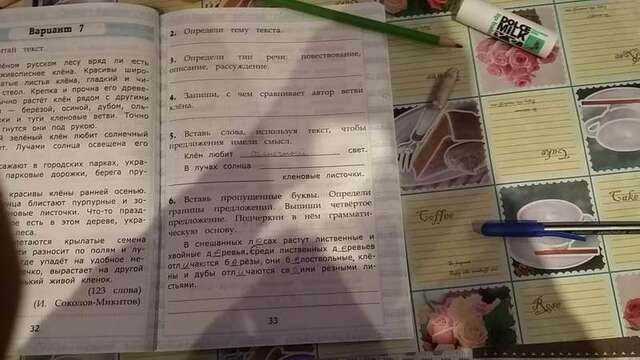 Вариант 7
текст.
русском лесу вряд ли есть
живописнее клёна. Красивы широ-
листья клёна, гладкий и чи-
ствол. Крепка и прочна его древе-
растёт клён рядом с другими
— берёзой, осиной, дубом,
и туги кленовые ветви. Точно
гнутся они под рукою.
зелёный клён любит солнечный
Лучами солнца освещена его
в городских парках, укра-
парковые дорожки, берега пру-
красивы клёны ранней осенью.
солнца блистают пурпурные и зо-
листочки. Что-то празд-
есть в этом дереве, укра-
леса.
крылатые семена
разносит по полям и лу-
упадёт на удобное ме-
вырастает на другой
живой кленок.
(123 слова)
(И. Соколов-Микитов)
32
2. Определи тему текста.
3. Определи тип речи: повествование,
описание, рассуждение.
4. Запиши, с чем сравнивает автор ветви
клёна.
5. Вставь слова, используя текст, чтобы
предложения имели смысл.
Клён любит солнечный свет.
В лучах солнца
кленовые листочки.
6. Вставь пропущенные буквы. Определи
границы предложений. Выпиши четвёртое
предложение. Подчеркни в нём граммати-
ческую основу.
В смешанных лесах растут лиственные и
хвойные деревья, среди лиственных деревьев
отличаются берёзы, они белоствольные, клё-
ны и дубы отличаются своими резными ли-
стьями.
33
DOLCE
MILK
Cake
Cake
Coffee
Rose